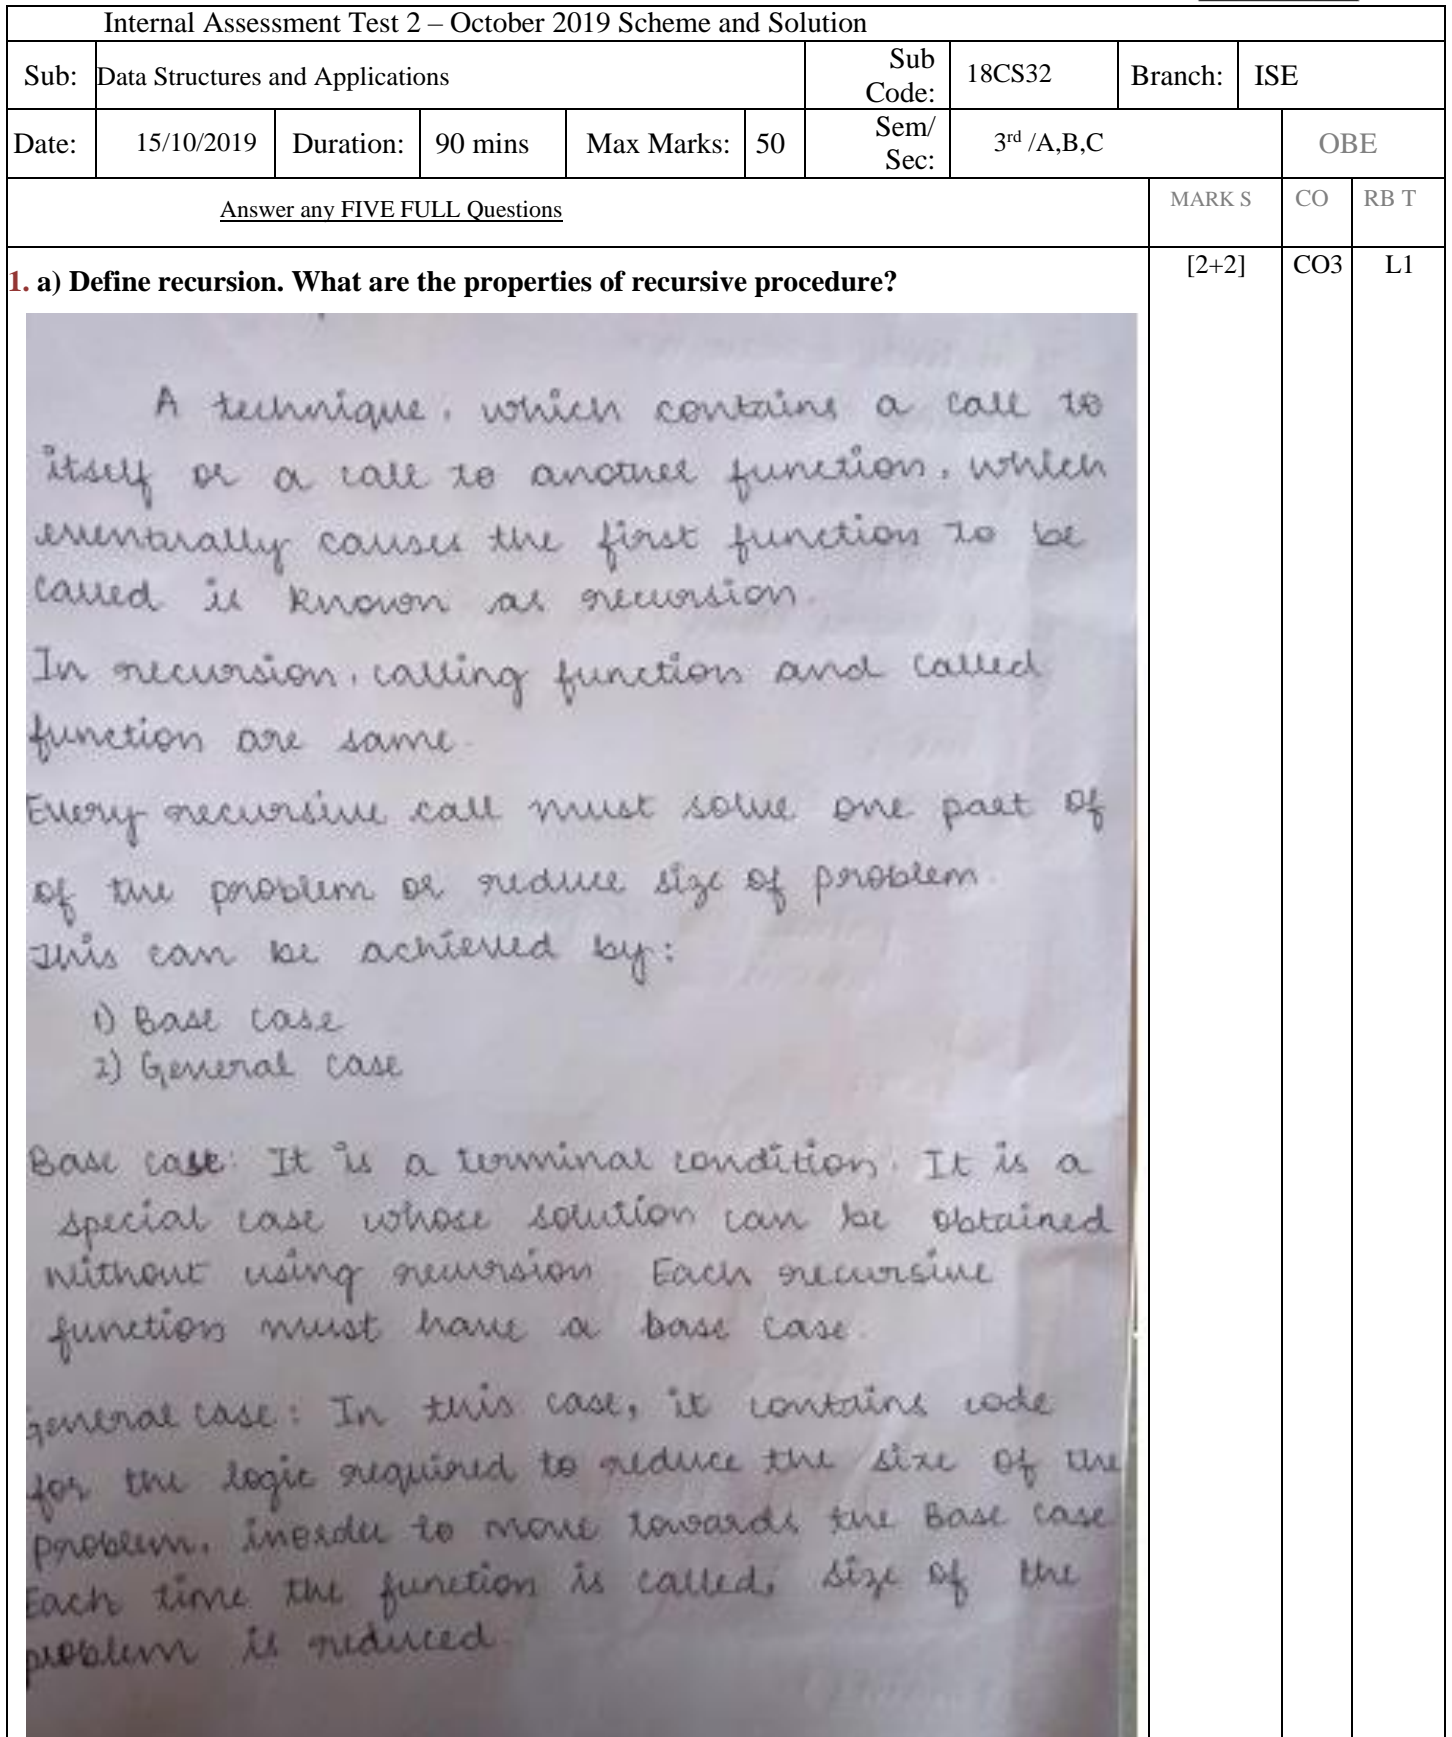 Internal Assessment Test 2 – October 2019 Scheme and Solution
Sub: Data Structures and Applications Sub Code: 18CS32 Branch: ISE
Date: 15/10/2019 Duration: 90 mins Max Marks: 50 Sem/ Sec: 3rd /A,B,C OBE
Answer any FIVE FULL Questions MARK S CO RB T
1. a) Define recursion. What are the properties of recursive procedure? [2+2] CO3 L1
A technique, which contains a call to
itself or a call to another function, which
eventually causes the first function to be
called is known as recursion.
In recursion, calling function and called
function are same.
Every recursive call must solve one part of
of the problem or reduce size of problem.
This can be achieved by:
1) Base case
2) General case
Base case: It is a terminal condition. It is a
special case whose solution can be obtained
without using recursion. Each recursive
function must have a base case.
General case: In this case, it contains code
for the logic required to reduce the size of the
problem, inorder to move towards the Base case
Each time the function is called, size of the
problem is reduced.